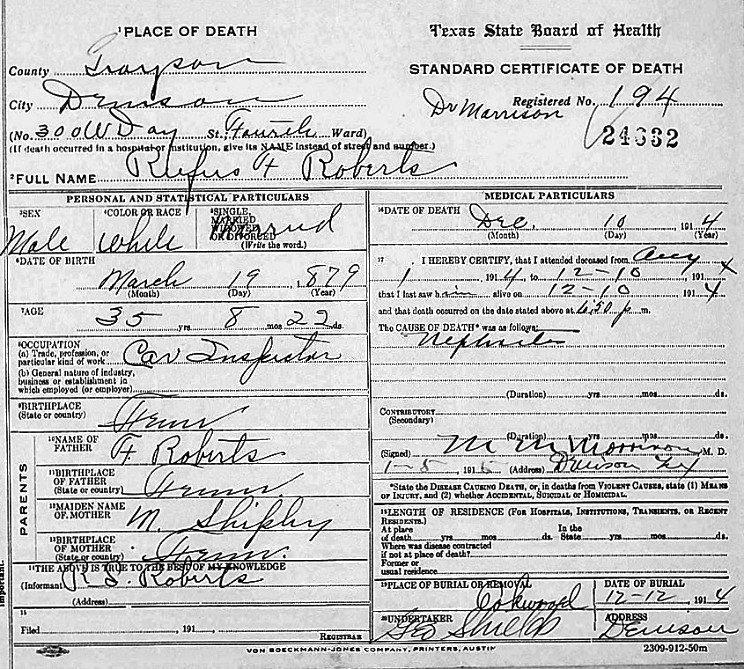 ¹PLACE OF DEATH
County Grayson
City Denison
(No. 300 W Day St., Fourth Ward)
(If death occurred in a hospital or institution, give its NAME instead of street and number.)
²FULL NAME Rufus F Roberts
Texas State Board of Health
STANDARD CERTIFICATE OF DEATH
Dr Morrison
Registered No. 194
24632
PERSONAL AND STATISTICAL PARTICULARS
³SEX
Male
⁴COLOR OR RACE
White
⁵SINGLE,
MARRIED
WIDOWED
OR DIVORCED
Married
(Write the word.)
⁶DATE OF BIRTH
March 19, 1879
(Month) (Day) (Year)
⁷AGE
35 yrs. 8 mos. 22 ds.
⁸OCCUPATION
(a) Trade, profession, or
particular kind of work Car Inspector
(b) General nature of industry,
business or establishment in
which employed (or employer)
⁹BIRTHPLACE
(State or country) Tenn
PARENTS
¹⁰NAME OF
FATHER F Roberts
¹¹BIRTHPLACE
OF FATHER
(State or country) Tenn
¹²MAIDEN NAME
OF MOTHER M. Shipley
¹³BIRTHPLACE
OF MOTHER
(State or country) Tenn.
¹⁴THE ABOVE IS TRUE TO THE BEST OF MY KNOWLEDGE
(Informant) R. S. Roberts
(Address)
15
Filed , 191
REGISTRAR
MEDICAL PARTICULARS
¹⁶DATE OF DEATH Dec. 10 1914
(Month) (Day) (Year)
17 I HEREBY CERTIFY, that I attended deceased from Aug
1 1914, to 12-10 1914
that I last saw him alive on 12-10 1914
and that death occurred on the date stated above at 6,50 p m.
The CAUSE OF DEATH* was as follows:
Nephritis
(Duration) yrs. mos. ds.
CONTRIBUTORY
(Secondary)
(Duration) yrs. mos. ds.
(Signed) M M Morrison M. D.
1-5, 1915 (Address) Denison Tex
*State the DISEASE CAUSING DEATH, or, in deaths from VIOLENT CAUSES, state (1) MEANS
OF INJURY, and (2) whether ACCIDENTAL, SUICIDAL or HOMICIDAL.
¹⁸LENGTH OF RESIDENCE (FOR HOSPITALS, INSTITUTIONS, TRANSIENTS, OR RECENT
RESIDENTS.)
At place In the
of death yrs. mos. ds. State yrs. mos. ds.
Where was disease contracted
if not at place of death?
Former or
usual residence
¹⁹PLACE OF BURIAL OR REMOVAL
Oakwood
DATE OF BURIAL
12-12, 1914
²⁰UNDERTAKER
Geo Shields
ADDRESS
Denison
Important.
VON BOECKMANN-JONES COMPANY, PRINTERS, AUSTIN
2309-912-50m